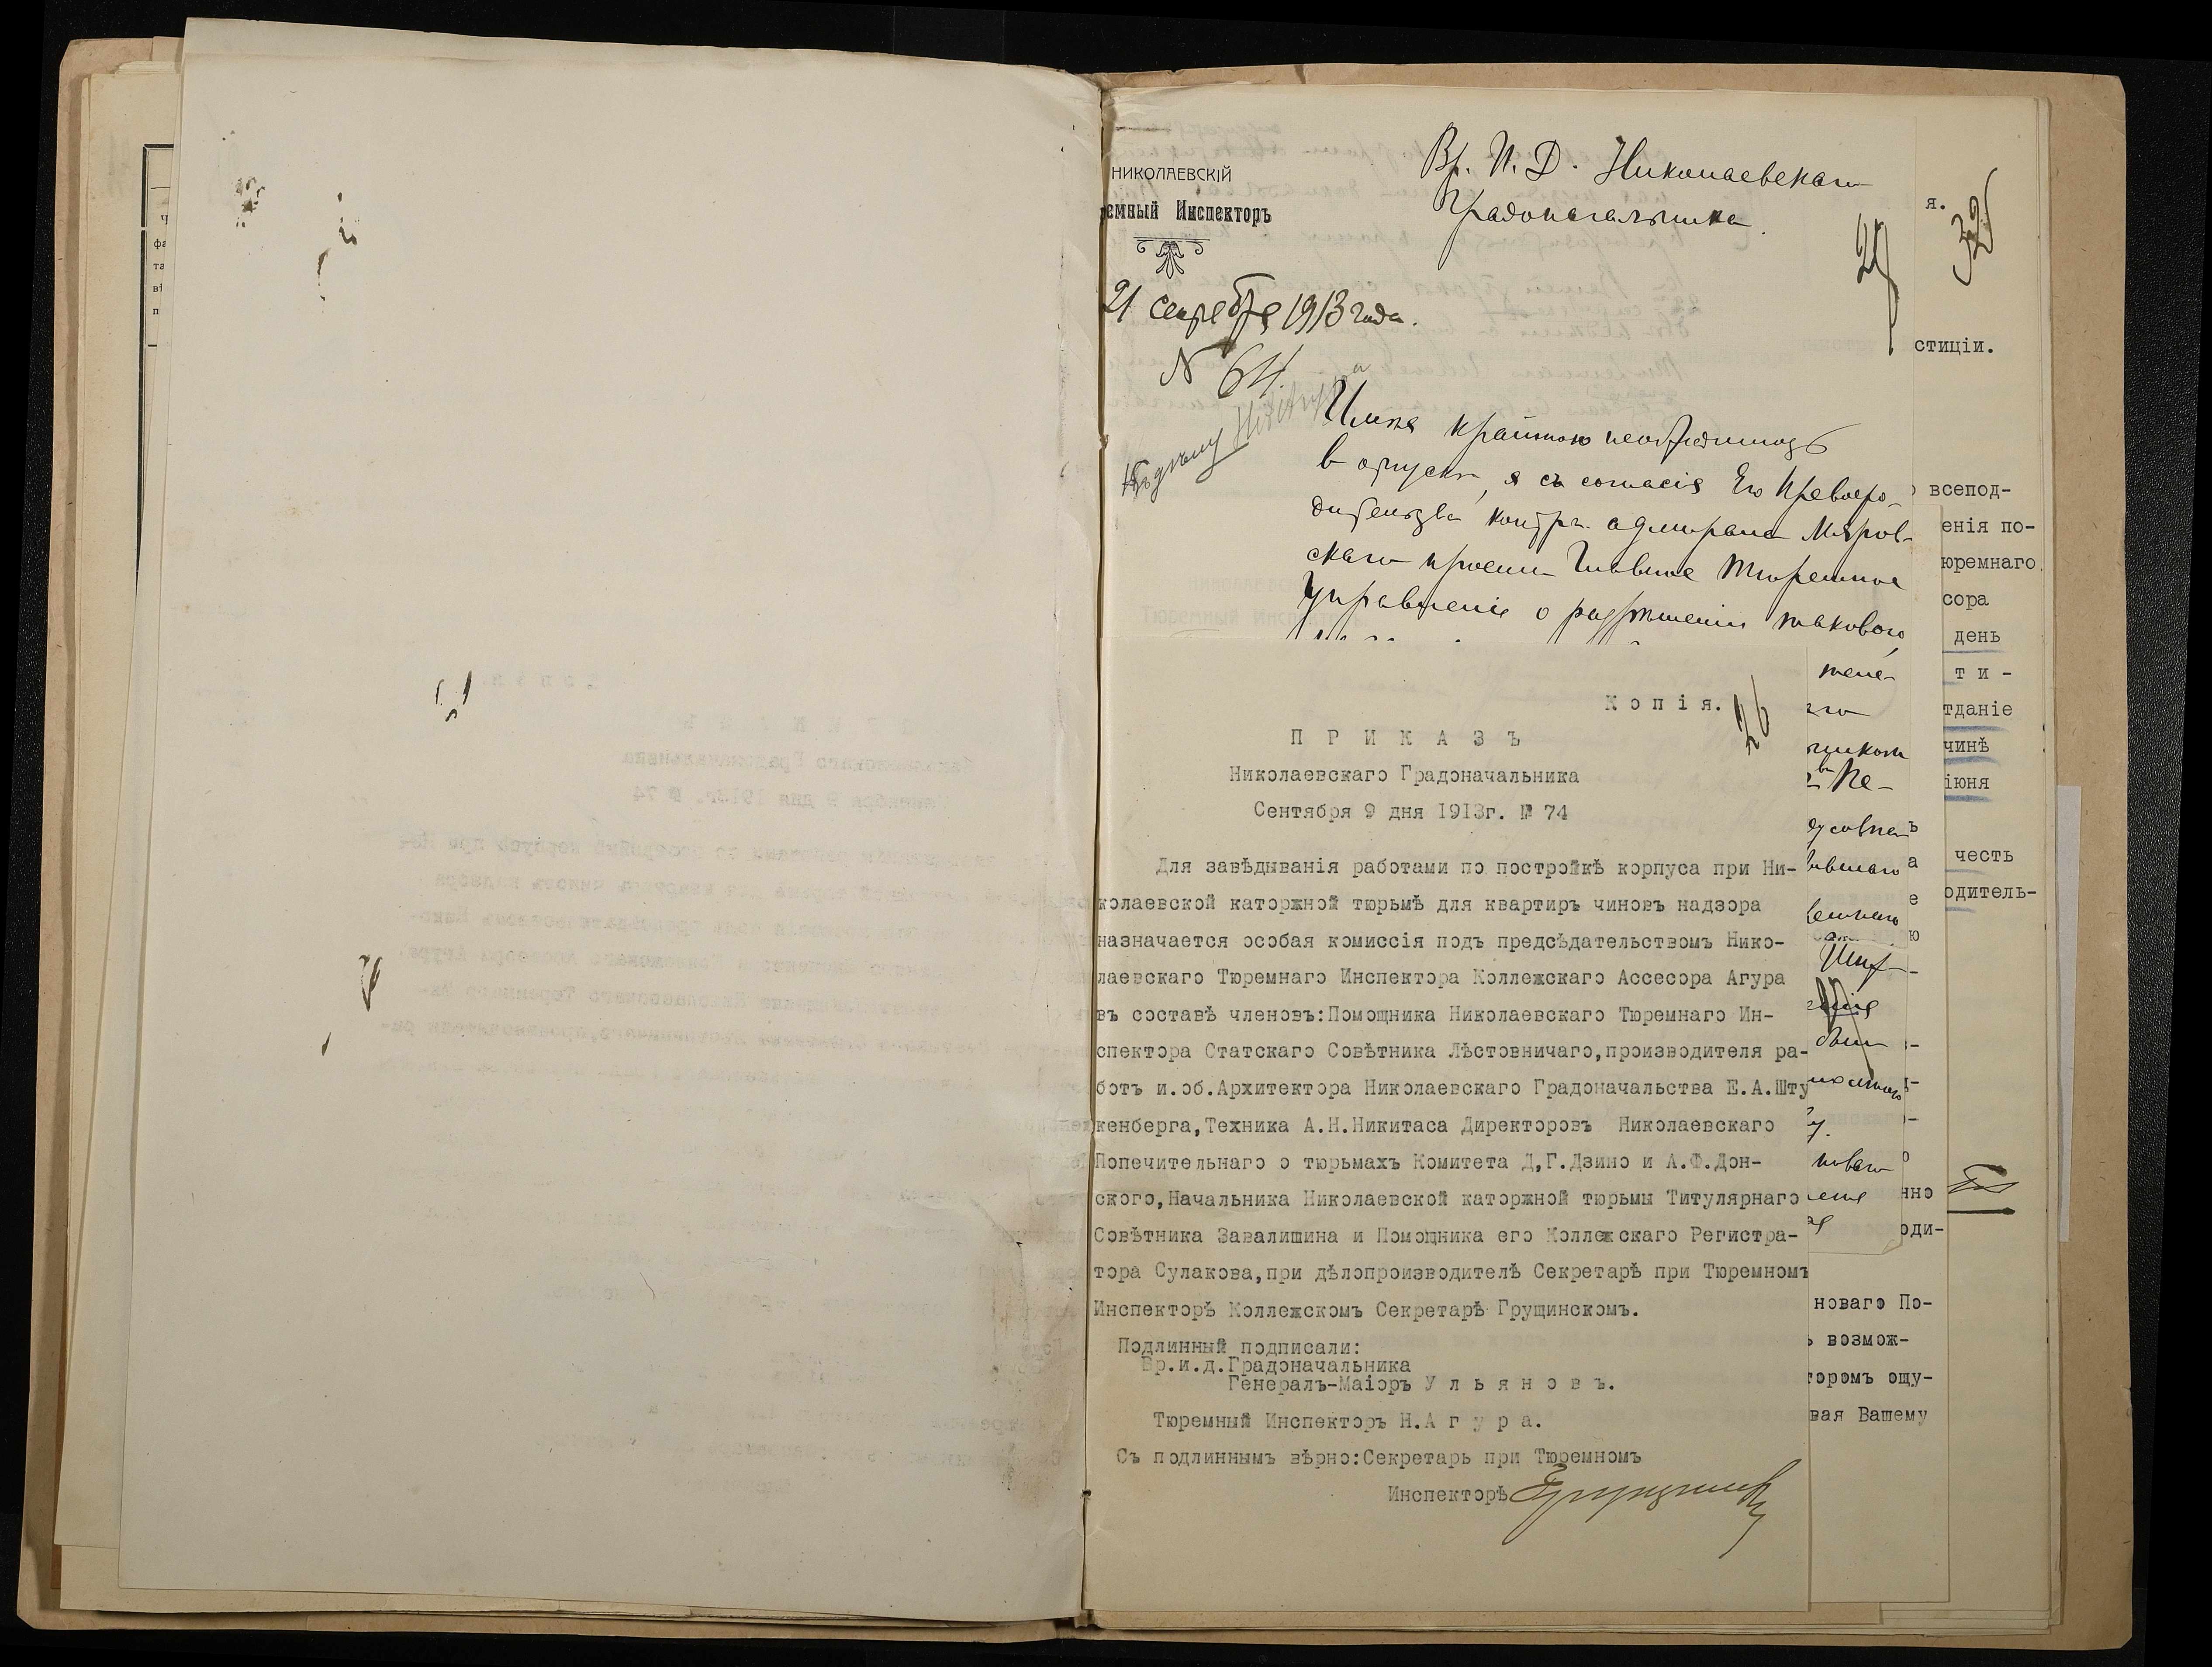 НИКОЛАЕВСКІЙ
емный Инспекторъ
21 сентября 1913 года.
N 64.
Вр. И. Д. Николаевскаго
Градоначальника.
32
Имѣя крайнюю необходимость
в отпускѣ, я съ согласія Его Превосхо-
дительства контръ адмирала Мязгов-
скаго просилъ Главное Тюремное
Управленіе о разрѣшеніи такового
Копія.
26
П Р И К А З Ъ
Николаевскаго Градоначальника
Сентября 9 дня 1913г. № 74
Для завѣдыванія работами по постройкѣ корпуса при Ни-
колаевской каторжной тюрьмѣ для квартиръ чиновъ надзора
назначается особая комиссія подъ предсѣдательствомъ Нико-
лаевскаго Тюремнаго Инспектора Коллежскаго Ассесора Агура
въ составѣ членовъ:Помощника Николаевскаго Тюремнаго Ин-
спектора Статскаго Совѣтника Лѣстовничаго,производителя ра-
ботъ и.об.Архитектора Николаевскаго Градоначальства Е.А.Шту
кенберга,Техника А.Н.Никитаса Директоровъ Николаевскаго
Попечительнаго о тюрьмахъ Комитета Д,Г.Дзино и А.Ф.Дон-
ского,Начальника Николаевской каторжной тюрьмы Титулярнаго
Совѣтника Завалишина и Помощника его Коллежскаго Регистра-
тора Сулакова,при дѣлопроизводителѣ Секретарѣ при Тюремномъ
Инспекторѣ Коллежскомъ Секретарѣ Грущинскомъ.
Подлинный подписали:
Вр.и.д.Градоначальника
Генералъ-Маіоръ У л ь я н о в ъ.
Тюремный Инспекторъ Н.А г у р а.
Съ подлиннымъ вѣрно:Секретарь при Тюремномъ
Инспекторѣ
я.
стиціи.
всепод-
енія по-
юремнаго
сора
день
т и -
тданіе
чинѣ
іюня
честь
одитель-
нно
оди-
новаго По-
ь возмож-
торомъ ощу-
вая Вашему